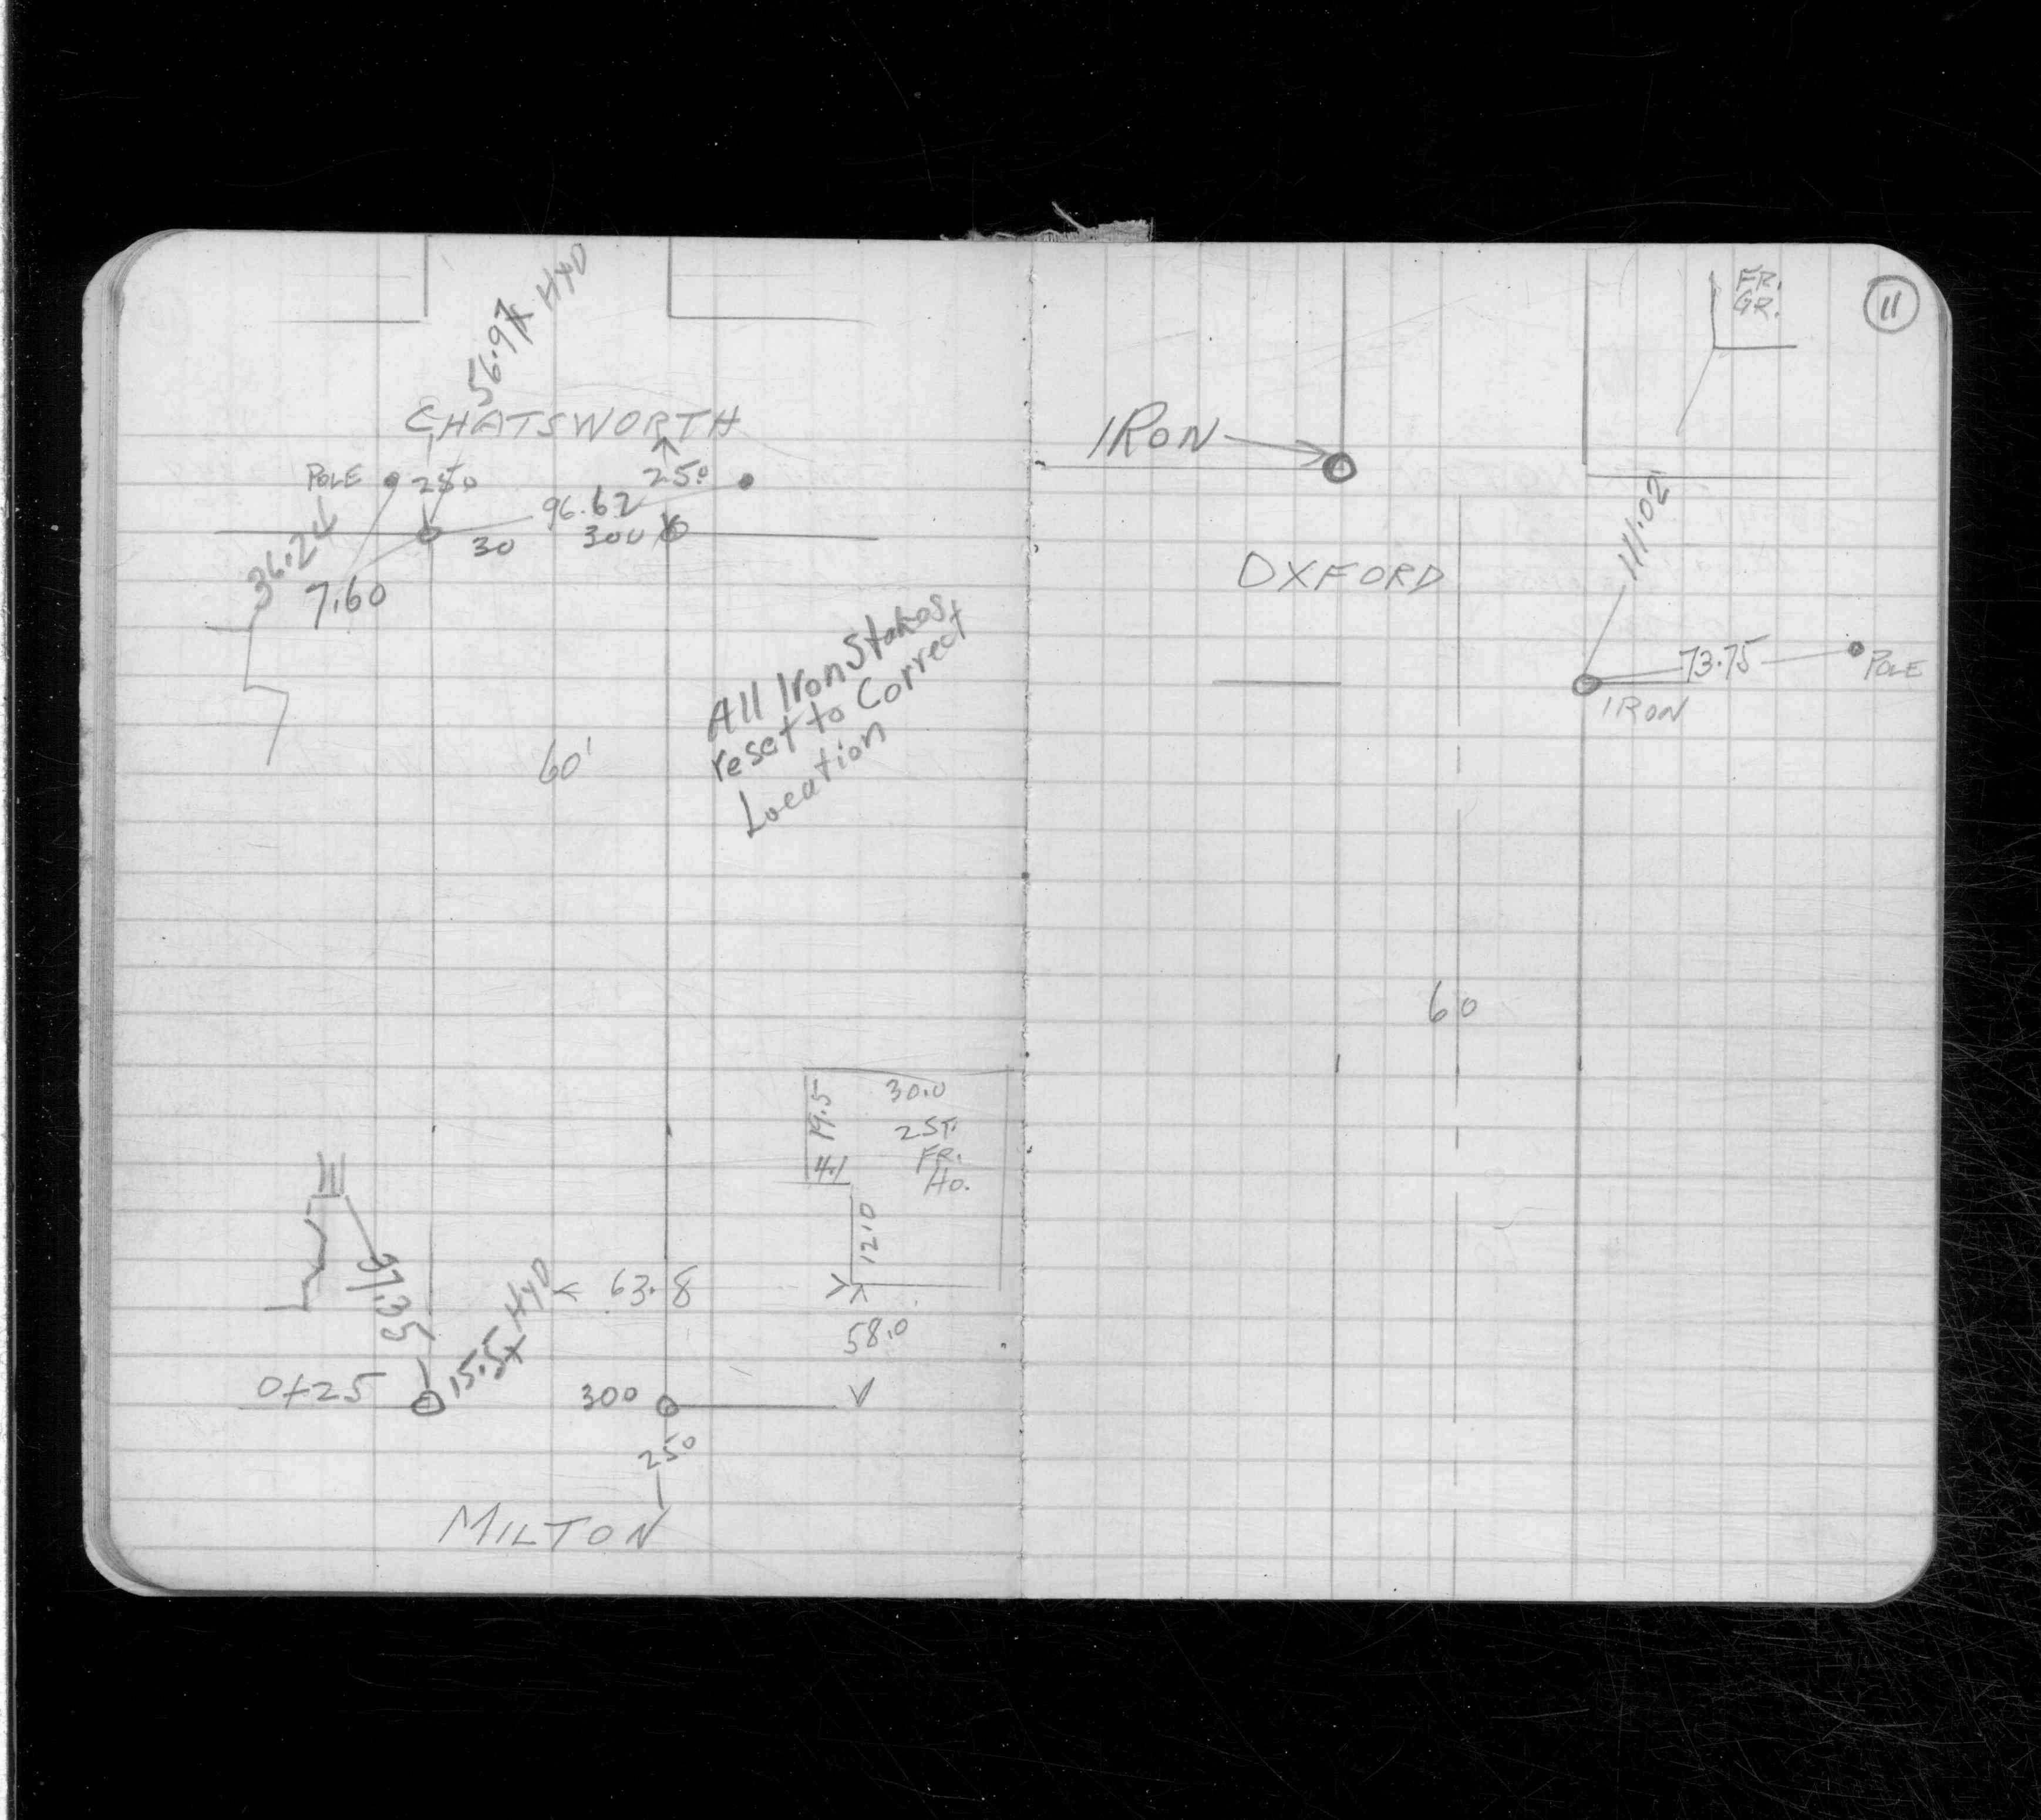 56.97 x HYD
CHATSWORTH
POLE 250 250
96.62
30 300
36.24
7.60
All Iron Stakes
reset to Correct
Location
60'
30.0
19.5
2 ST.
FR.
Ho.
4.1
12.0
HyD
63.8
37.35
15.5x
58.0
0+25
300
250
MILTON
11
FR.
GR.
IRON
111.02
OXFORD
73.75
POLE
IRON
60